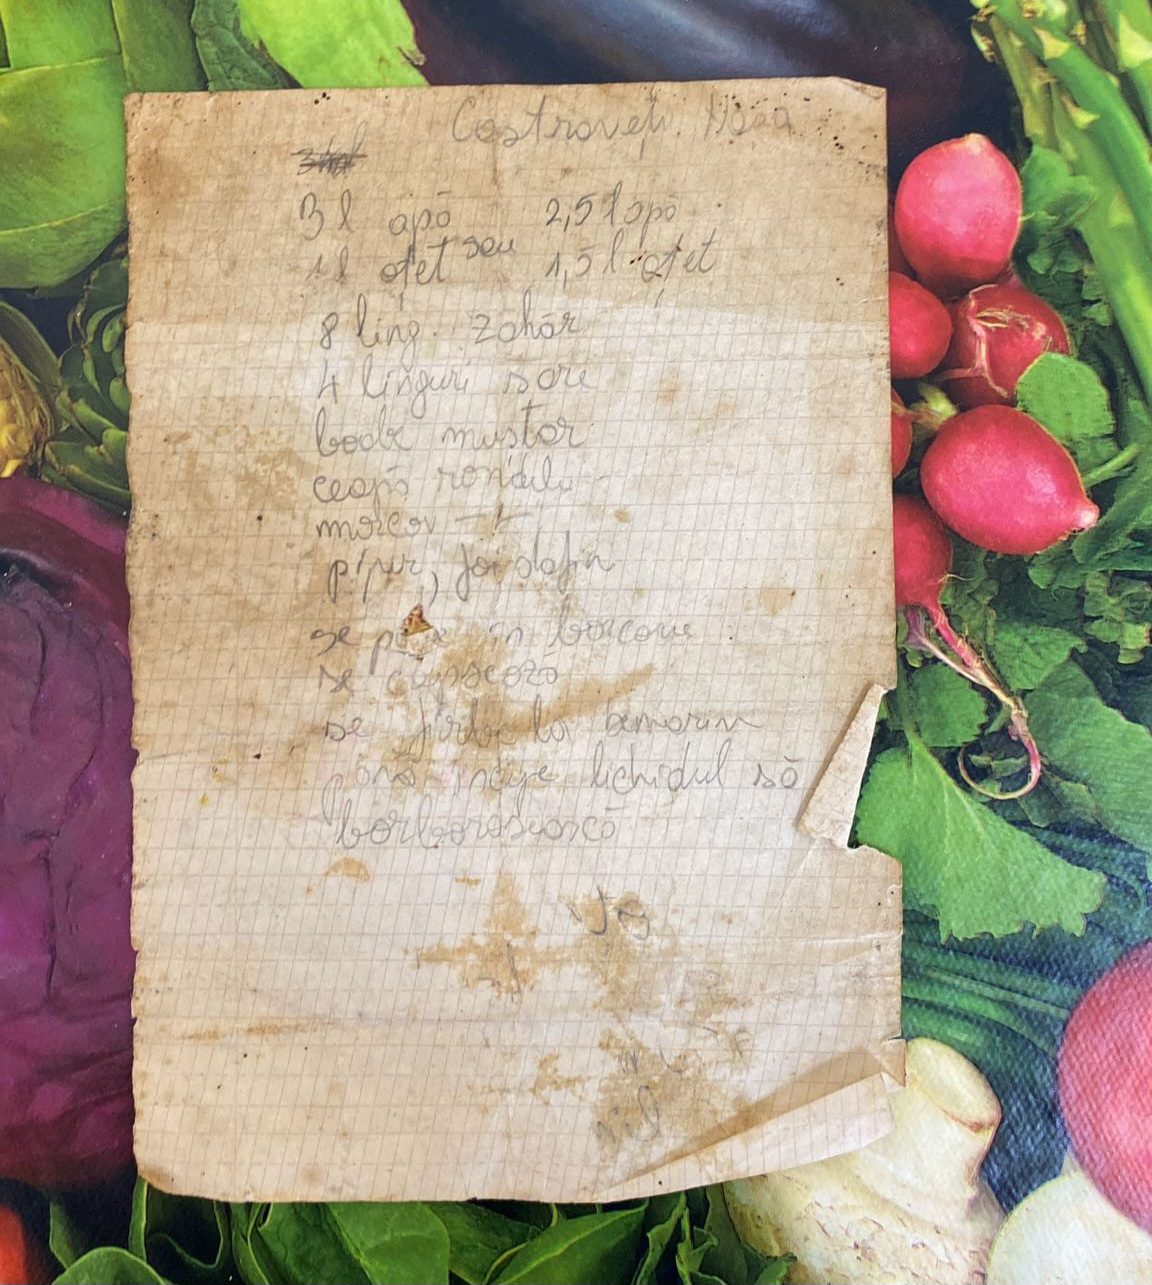 Castraveți
3 l apă 2,5 l apă
sau
1 l oțet 1,5 l oțet
8 ling. zahăr
4 linguri sare
boabe muștar
ceapă rondele
morcov —"—
piper, foi dafin
se pune în borcane
se capsează
se fierbe la bemarin
până începe lichidul să
bolborosească